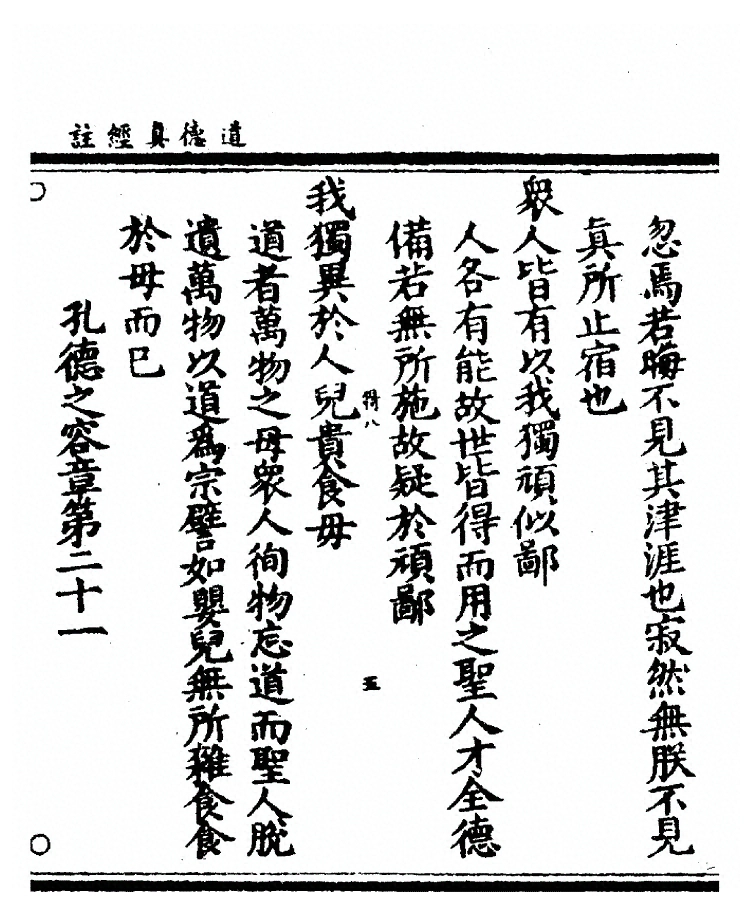 道德真經註
忽焉若晦不見其津涯也寂然無朕不見
眞所止宿也
衆人皆有以我獨頑似鄙
人各有能故世皆得而用之聖人才全德
備若無所施故疑於頑鄙
得八
五
我獨異於人兒貴食母
道者萬物之母衆人徇物忘道而聖人脫
遺萬物以道爲宗譬如嬰兒無所雜食食
於母而已
孔德之容章第二十一